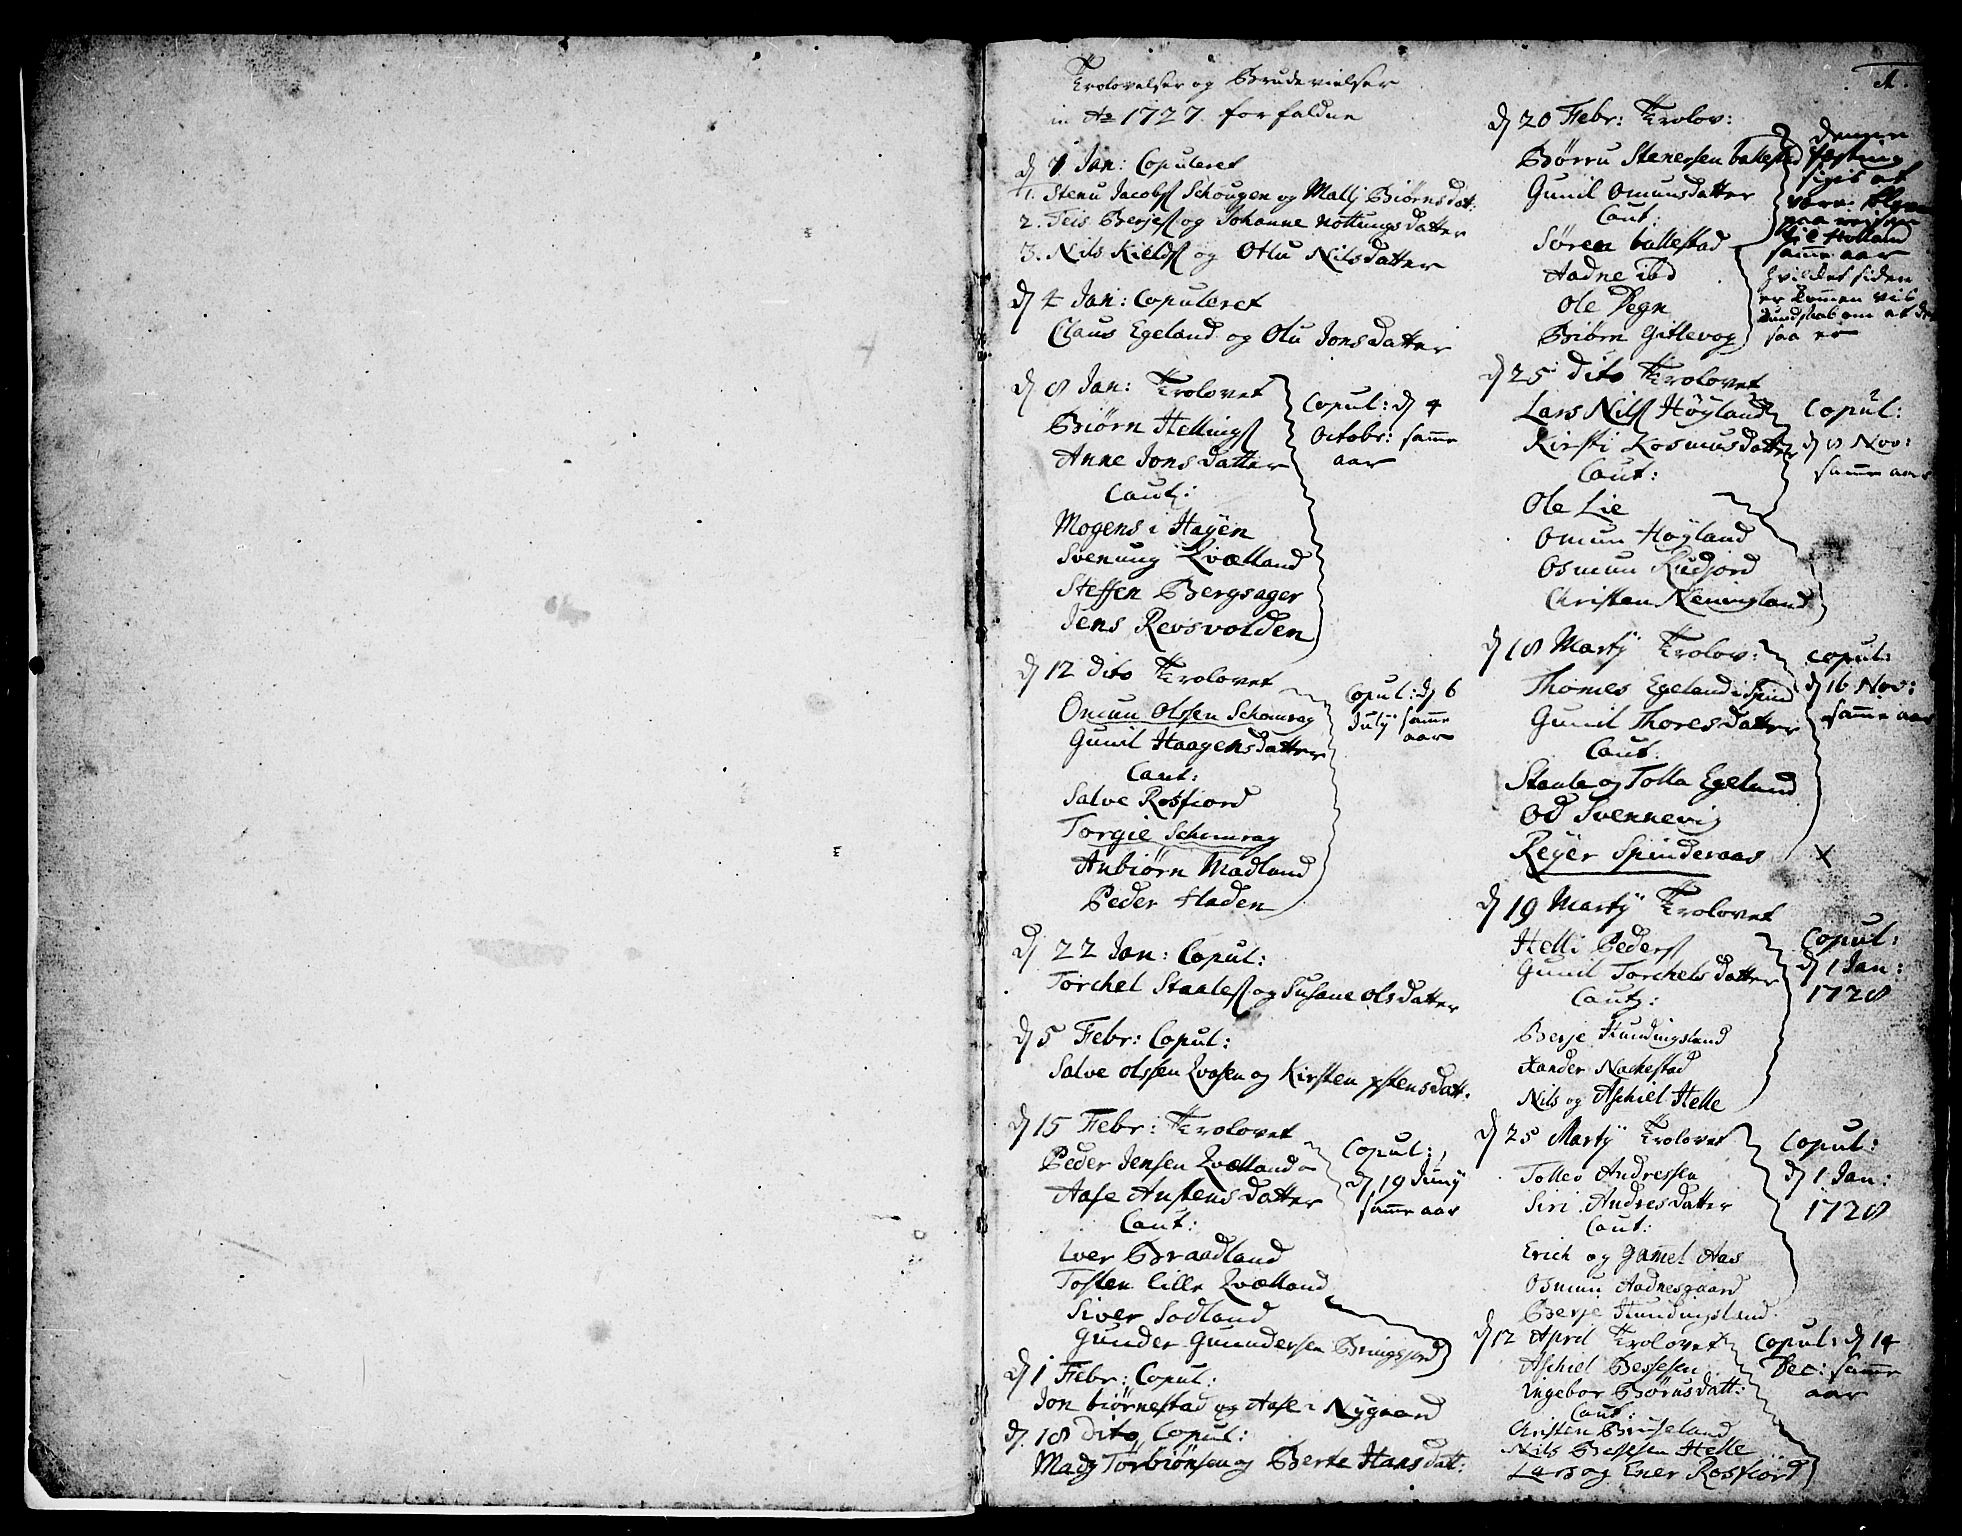 Trolovelser og Brude vielser
in Ao 1727. forfaldne
d 1 Jan: Copuleret
1. Stenu Jacobs Schougen og Malli Biørnsdat:
2. Teis Berjes og Johanne nottungsdatter
3. Nils Kields og Ollu Nilsdatter
d 4 Jan: Copuleret
Claus Egeland og Olu Jonsdatter
d 8 Jan: Trolovet
Biørn Hellings
Anne Jonsdatter
Caut:
Mogens i Hayen
Svenung Qvælland
Steffen Bergsager
Jens Revsvolden
Copul: d 4
Octobr: samme
aar
d 12 dito Trolovet
Omun Olssen Schomrag
Gunil Haagensdatter
Caut:
Salve Rosfiord
Torgie Schomrag
Anbiørn Madland
Peder Haden
Copul: d 6
July samme
aar
d 22 Jan: Copul:
Torchel Staales og Susane olsdatter
d 5 Febr: Copul:
Salve olssen Qvasen og Kirsten stensdatt:
d 15 Febr: Trolovet
Peder Jensen Qvælland
Aase Anstensdatter
Caut:
Iver Braadland
Tosten lille Qvælland
Siver Sodland
Gunder Gundersen Bringsjord
Copul:
d 19 Juny
samme aar
d 1 Febr: Copul:
Jon biørnestad og Aase i Nygaard
d. 18 dito Copul:
Mads Torbiørnsen og Berte Hansdatt:
1.
d 20 Febr: Trolov:
Børru Stenersen ballestad
Gunil Omunsdatter
Caut:
Søren ballestad
Aadne ibd
Ole Degn
Biørn Gitlevog
denne
festing
siges at
være
paa reisen
til Holland
samme aar
hvilket siden
er kommen vis
kundskab om at det
saa er
d 25 dito Trolovet
Lars Nils Høyland
Kirsti Rosmusdatter
Caut:
Ole Lie
Omun Høyland
Osmun Rudjord
Christen Neningland
Copul:
d 8 Nov:
samme aar
d 18 Marty Trolov:
Thomes Egeland i Spind
Gunil Thoresdatter
Caut.
Staale og Tolla Egeland
Od Svennevig
Reyer Spinderaas
Copul:
d 16 Nov:
samme aar
X
d 19 Marty Trolovet
Helli Peders
Gunil Torchelsdatter
Caut:
Berje Hundingsland
Xander Nackestad
Nils og Aschiel Helle
Copul:
d 1 Jan:
1728
d 25 Marty Trolovet
Tollev Andressen
Siri Andresdatter
Caut:
Erich og Gamel Aas
Osmun Aadnesgaard
Berje Hundingsland
Copul:
d 1 Jan:
1728
d 12 April Trolovet
Aschiel Bessesen
Ingebor Børrusdatt:
Caut:
Christen Bruseland
Nils Bessesen Helle
Lars og Ener Rosfiord
Copul: d 14
Dec: samme
aar